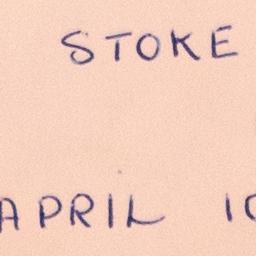 STOKE
APRIL 10